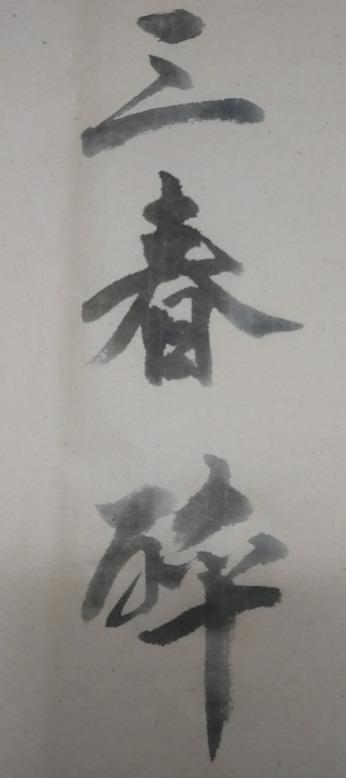 三春醉